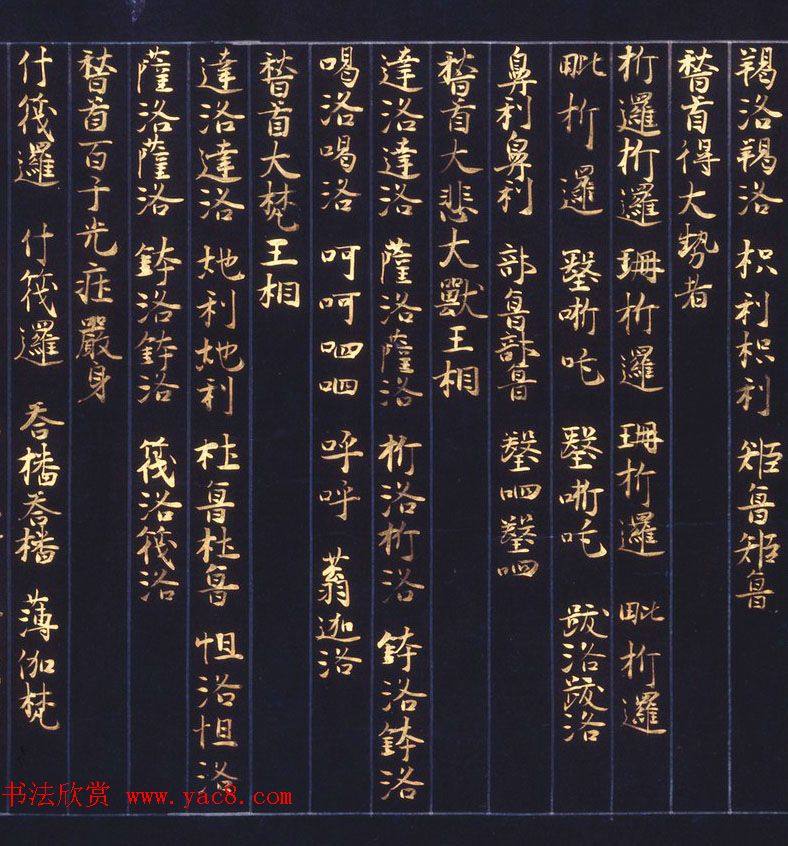 羯洛羯洛 枳利枳利 矩魯矩魯
稽首得大勢者
桁邏桁邏 珊桁邏 珊桁邏 毗桁邏
毗桁邏 墼嘶吒 墼嘶吒 跋洛跋洛
鼻利鼻利 部魯部魯 鏧呬鏧呬
稽首大悲大獸王相
達洛達洛 薩洛薩洛 桁洛桁洛 鉢洛鉢洛
喝洛喝洛 呵呵呬呬 呼呼 蓊迦洛
稽首大梵王相
達洛達洛 地利地利 杜魯杜魯 怛洛怛洛
薩洛薩洛 鉢洛鉢洛 筏洛筏洛
稽首百千光莊嚴身
什筏邏 什筏邏 荅播荅播 薄伽梵
书法欣赏 www.yac8.com